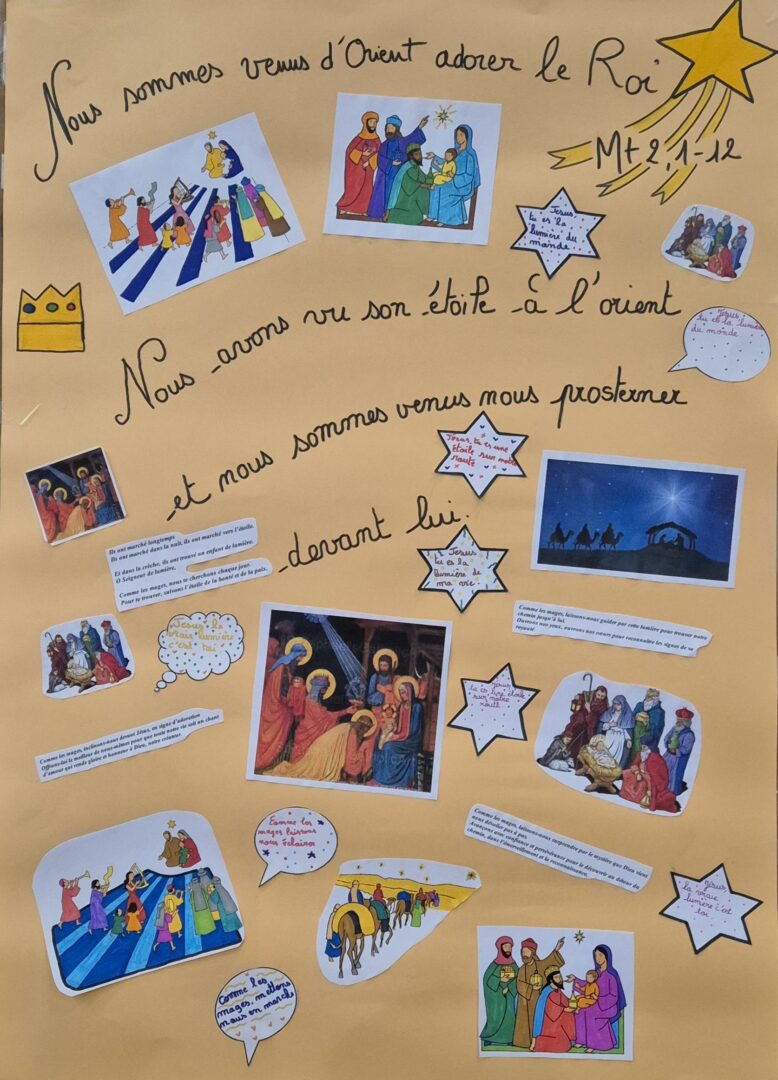 Nous sommes venus d'Orient adorer le Roi
Mt 2, 1-12
Jésus,
tu es la
lumière du
monde
Jésus,
tu es la lumière
du monde
Nous avons vu son étoile à l'orient
et nous sommes venus nous prosterner
devant lui.
Jésus tu es une
étoile sur notre
route
Ils ont marché longtemps
Ils ont marché dans la nuit, ils ont marché vers l'étoile.
Et dans la crèche, ils ont trouvé un enfant de lumière.
O Seigneur de lumière,
Comme les mages, nous te cherchons chaque jour.
Pour te trouver, suivons l'étoile de la bonté et de la paix.
Jésus
tu es la
lumière de
ma vie.
Comme les mages, laissons-nous guider par cette lumière pour trouver notre
chemin jusqu'à lui.
Ouvrons nos yeux, ouvrons nos cœurs pour reconnaître les signes de sa
royauté
Jésus la
vraie lumière
c'est toi
Jésus
tu es une étoile
sur notre
route
Comme les mages, inclinons-nous devant Jésus, en signe d'adoration
Offrons-lui le meilleur de nous-mêmes pour que toute notre vie soit un chant
d'amour qui rende gloire et honneur à Dieu, notre créateur.
Comme les
mages laissons
nous éclairer
Comme les mages, laissons-nous surprendre par le mystère que Dieu vient
nous dévoiler pas à pas.
Avançons avec confiance et persévérance pour le découvrir au détour du
chemin, dans l'émerveillement et la reconnaissance.
Jésus,
la vraie
lumière c'est
toi
Comme les
mages, mettons
nous en marche